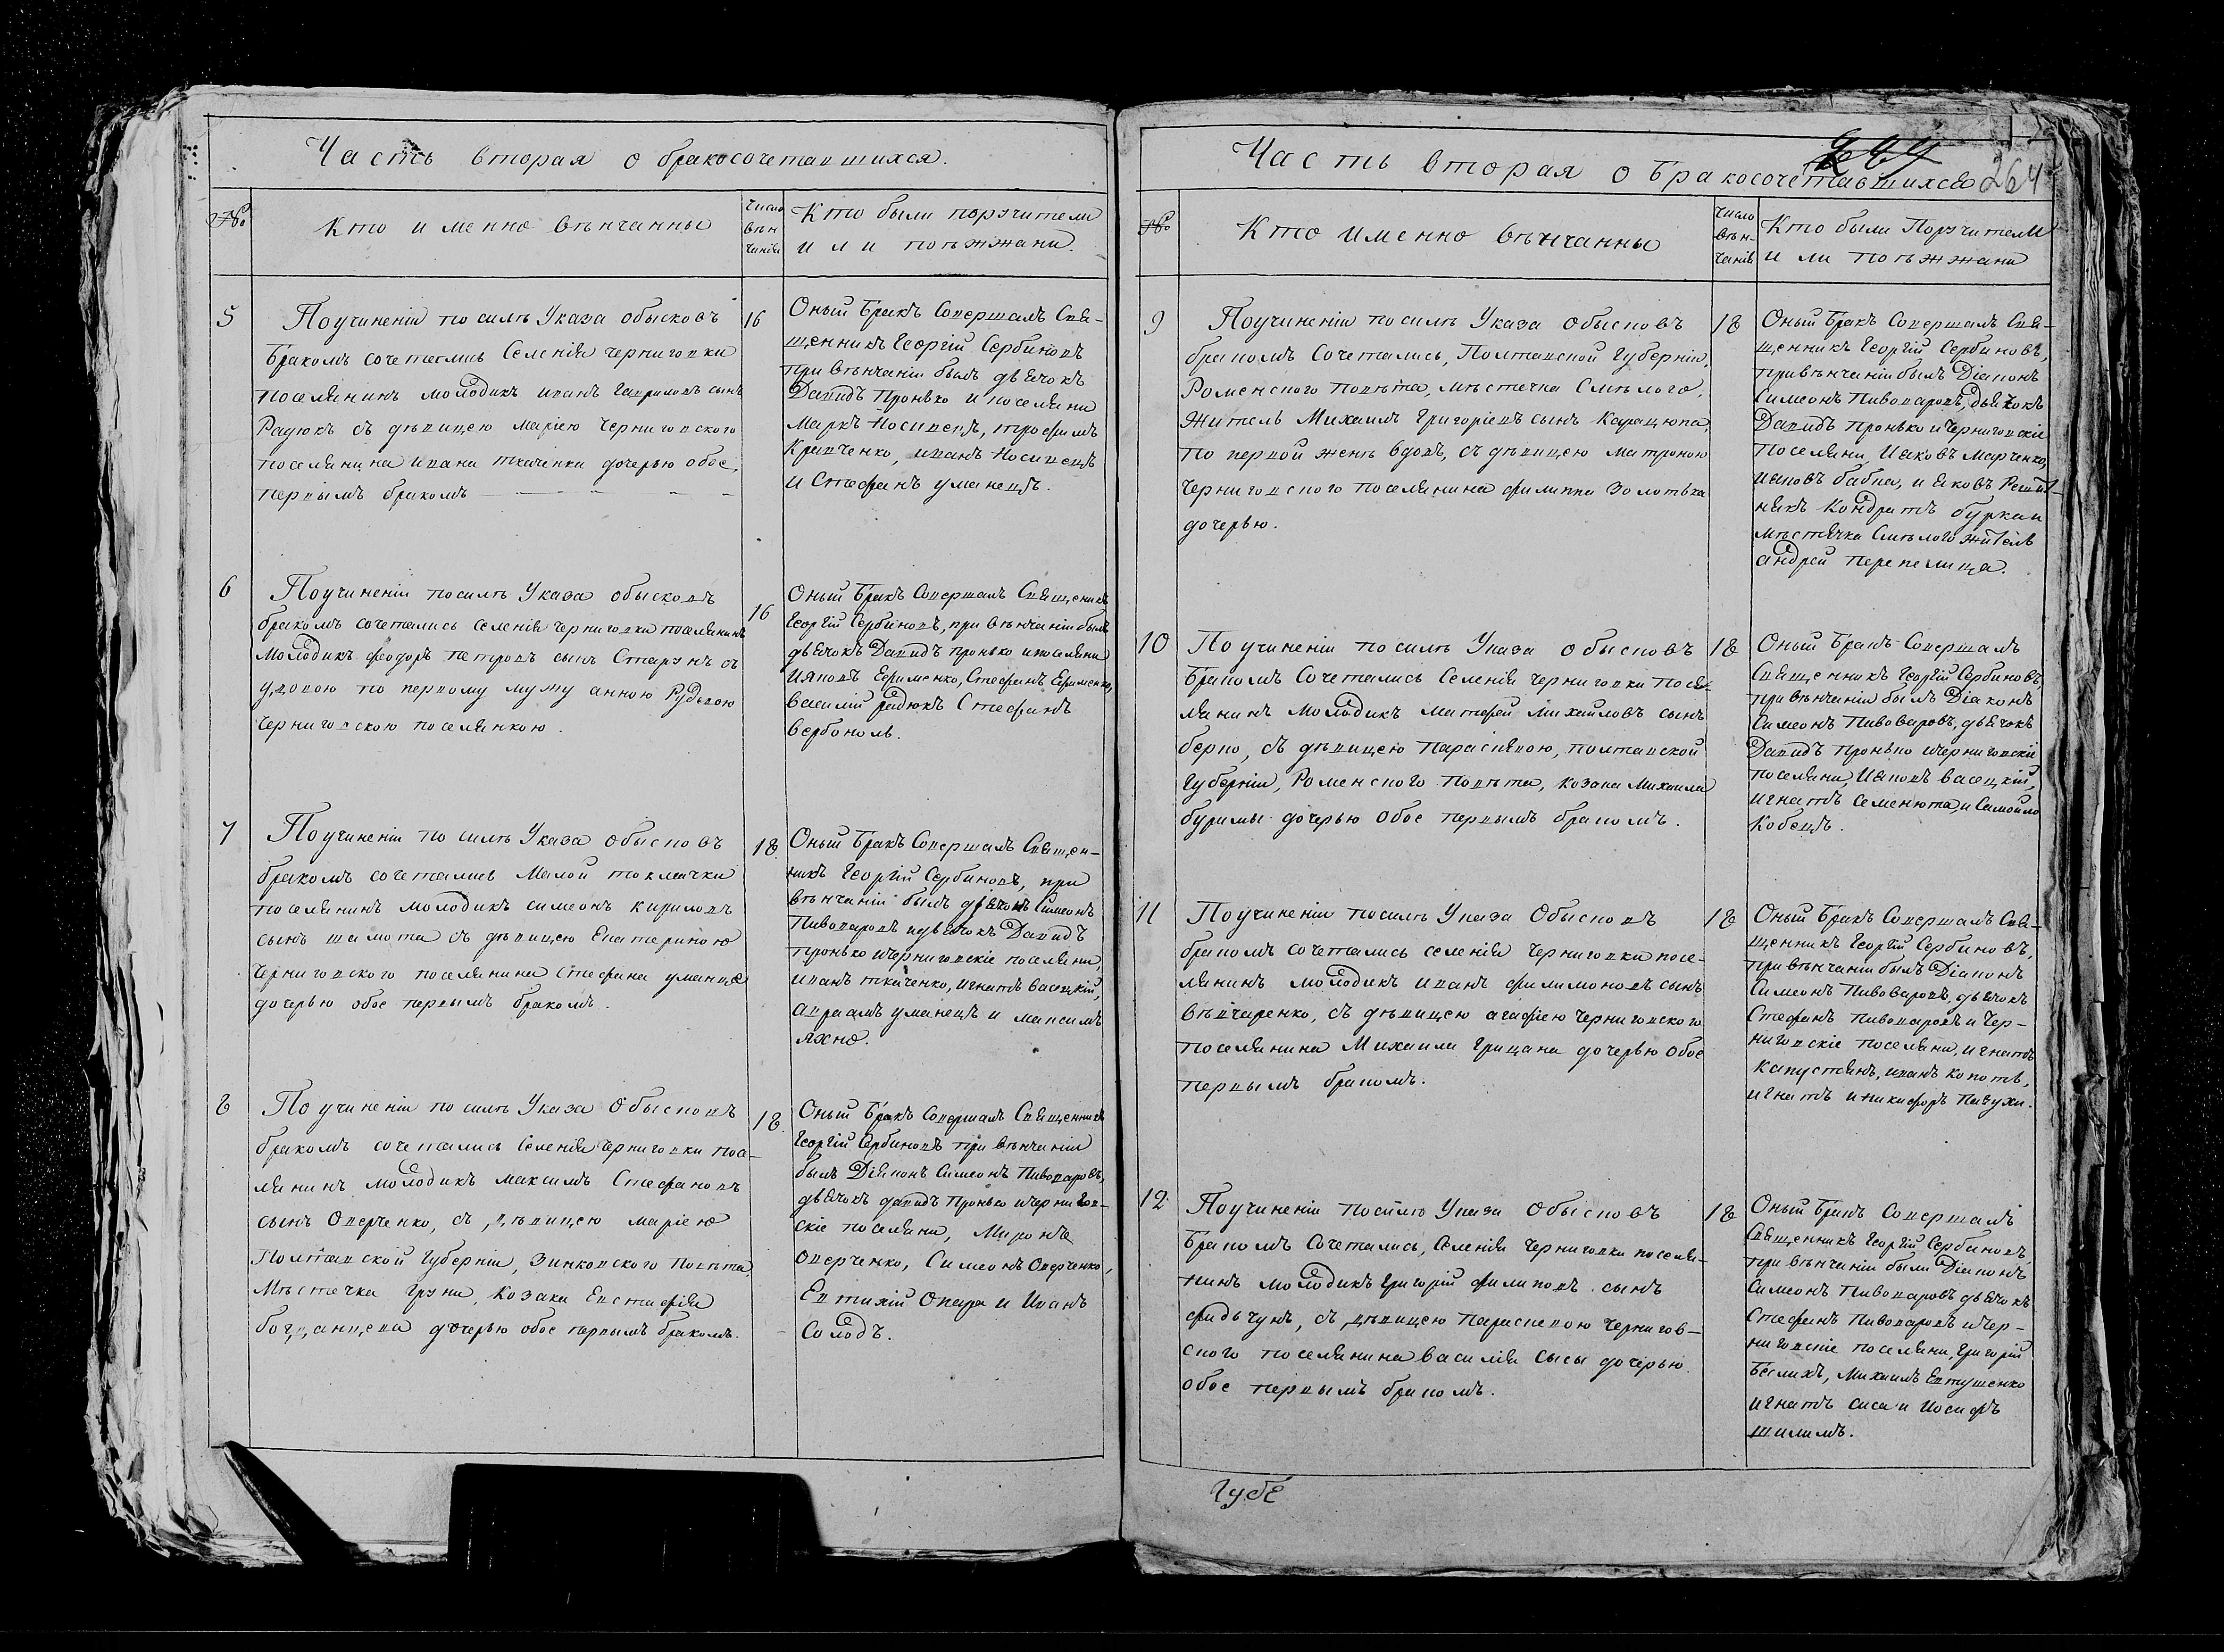 Часть вторая о бракосочетавшихся.
№
Кто именно вѣнчанны
Число
вѣн
чанія
Кто были поручители
или поѣзжани.
5
Поучиненіи по силѣ Указа обысковъ
бракомъ сочетались Селенія черниговки
поселянинъ молодикъ иванъ гавриловъ сынъ
Радюкъ съ дѣвицею маріею Черниговского
поселянина ивана ткаченка дочерью обое,
первымъ бракомъ
16
Оный бракъ Совершалъ Свя-
щенникъ Георгій Сербиновъ
при вѣнчаніи былъ дьячокъ
Давидъ Пронько и поселяни
Маркъ Носивецъ, трофимъ
Кравченко, иванъ Носивецъ
и Стефанъ уманецъ.
6
Поучиненіи посилѣ Указа обысковъ
бракомъ сочетались селенія черниговки поселянинъ
Молодикъ феодоръ петровъ сынъ Старунъ съ
удовою по первому мужу анною Рудькою
черниговскою поселянкою.
16
Оный бракъ Совершалъ Священикъ
Георгій Сербиновъ, при вѣнчаніи былъ
дьячокъ Давидъ пронько и поселяни
Ияковъ Ефименко, Стефанъ Ефименко,
василій радюкъ Стефанъ
вербоноль.
7
Поучиненіи по силѣ Указа обысковъ
бракомъ сочетались Малой токмачки
поселянинъ молодикъ симеонъ кириловъ
сынъ шамота съ дѣвицею Екатериною
Черниговского поселянина Стефана уманця
дочерью обое первымъ бракомъ.
18
Оный бракъ Совершалъ Священ-
никъ Георгій Сербиновъ, при
вѣнчаніи былъ діяконъ Симеонъ
Пивоваровъ идьячокъ Давидъ
пронько ичерниговскіе поселяни,
иванъ ткаченко, игнатъ васецкій,
авраамъ уманецъ и максимъ
яхно.
8
Поучиненіи по силѣ Указа Обысковъ
бракомъ сочетались Селенія черниговки посе-
лянинъ молодикъ максимъ Стефановъ
сынъ Оверченко, съ дѣвицею маріею
Полтавской Губерніи, Зинковского Повѣта,
Мѣстечка груни, козака Евстафія
богданцева дочерью обое первымъ бракомъ.
18
Оный бракъ Совершалъ Священникъ
Георгій Сербиновъ при вѣнчаніи
былъ Діяконъ Симеонъ Пивоваровъ,
дьячокъ давидъ Пронько ичернигов-
скіе поселяни, Миронъ
Оверченко, Симеонъ Оверченко,
Евтихій Опара и Иванъ
Солодъ.
Часть вторая о Бракосочетавшихся
264
264
№
Кто именно вѣнчанны
Число
вѣн-
чанія
Кто были Поручители
или поѣзжани
9
Поучиненіи посилѣ Указа Обысковъ
бракомъ Сочетались, Полтавской Губерніи,
Роменского повѣта, мѣстечка Смѣлого,
житель Михаилъ Григоріевъ сынъ Карацюпа,
по первой женѣ вдовъ, съ дѣвицею матроною
Черниговского поселянина филиппа Золотька
дочерью.
18
Оный бракъ Совершалъ Свя-
щенникъ Георгій Сербиновъ,
привѣнчаніи былъ Діаконъ
Симеонъ Пивоваровъ, дьячокъ
Давидъ пронько ичерниговскіе
поселяни, Ияковъ Марченко,
ияковъ бабка, и яковъ Решит-
никъ Кондратъ буркан
мѣстечка Смѣлого житель
андрей перепелица.
10
Поучиненіи по силѣ Указа Обысковъ
Бракомъ Сочетались Селенія черниговки посе-
лянинъ молодикъ матфей михайловъ сынъ
берко, съ дѣвицею параскивою, полтавской
губерніи, Роменского повѣта, козака Михаила
буримы дочерью Обое первымъ бракомъ.
18
Оный бракъ Совершалъ
Священникъ Георгій Сербиновъ,
привѣнчаніи былъ Діаконъ
Симеонъ Пивоваровъ, дьячокъ
Давидъ пронько ичерниговскіе
поселяни, Ияковъ васецкій,
игнатъ Семенюта, и Самойло
Кобецъ.
11
Поучиненіи посилѣ Указа Обысковъ
бракомъ сочетались селенія Черниговки посе-
лянинъ молодикъ иванъ филимоновъ сынъ
вѣвчаренко, съ дѣвицею агафіею Черниговского
поселянина Михаила Грицана дочерью Обое
первымъ бракомъ.
18
Оный бракъ Совершалъ Свя-
щенникъ Георгій Сербиновъ,
привѣнчаніи былъ Діаконъ
Симеонъ Пивоваровъ, дьячокъ
Стефанъ Пивоваровъ и Чер-
ниговскіе поселяни, игнатъ
Капустянъ, иванъ копоть,
игнатъ и никифоръ Пачухи.
12
Поучиненіи посилѣ Указа Обысковъ
Бракомъ Сочетались, Селенія Черниговки поселя-
нинъ молодикъ Григорій филиповъ сынъ
фидьчунъ, съ дѣвицею параскевою чернигов-
ского поселянина василія сысы дочерью
Обое первымъ бракомъ.
18
Оный бракъ Совершалъ
Священникъ Георгій Сербиновъ,
привѣнчаніи были Діаконъ
Симеонъ Пивоваровъ дьячокъ
Стефанъ Пивоваровъ ичер-
ниговскіе поселяни, Григорій
Беликъ, михаилъ Евтушенко
игнатъ сиса и Иосифъ
шилимъ.
Губе